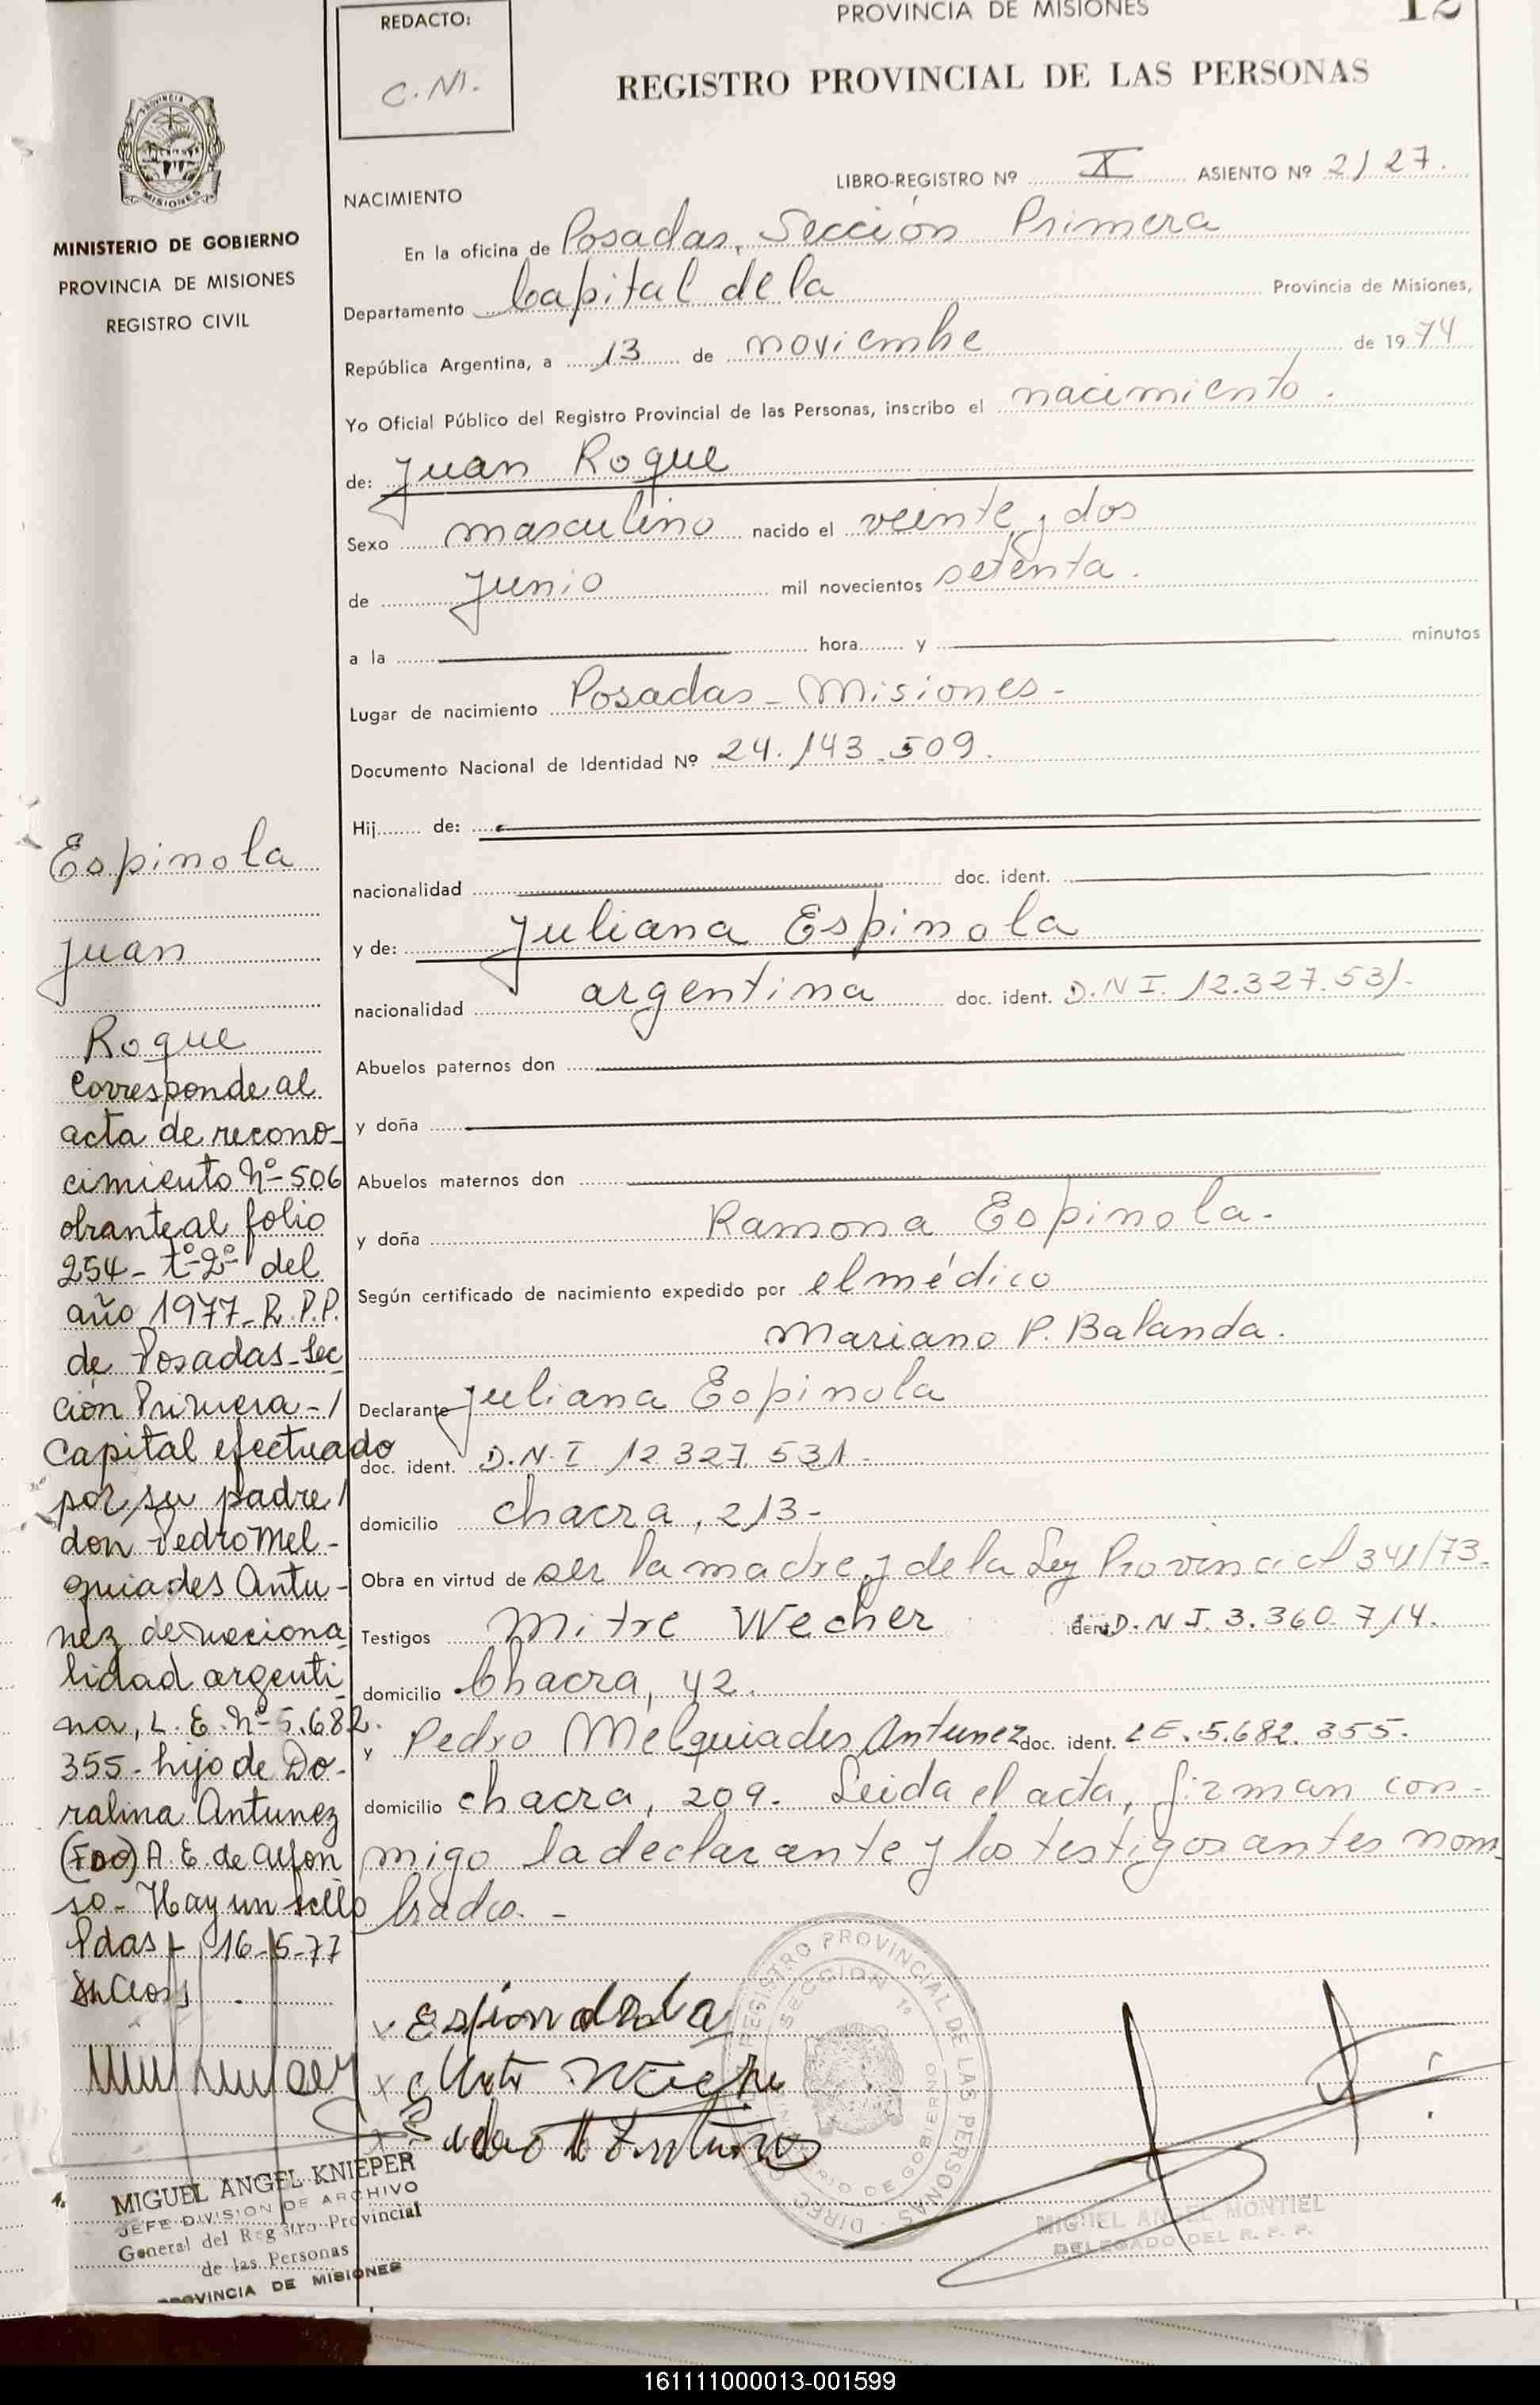 REDACTO:
C. N.
PROVINCIA DE MISIONES
12
REGISTRO PROVINCIAL DE LAS PERSONAS
PROVINCIA
MISIONES
MINISTERIO DE GOBIERNO
PROVINCIA DE MISIONES
REGISTRO CIVIL
LIBRO-REGISTRO Nº X ASIENTO Nº 2127.
NACIMIENTO
En la oficina de Posadas, Sección Primera
Departamento Capital de la Provincia de Misiones,
República Argentina, a 13 de noviembre de 1974
Yo Oficial Público del Registro Provincial de las Personas, inscribo el nacimiento.
de: Juan Roque
Sexo masculino nacido el veinte y dos
de Junio mil novecientos setenta.
a la hora y minutos
Lugar de nacimiento Posadas - Misiones -
Documento Nacional de Identidad Nº 24.143.509.
Hij de:
nacionalidad doc. ident.
y de: Juliana Espinola
nacionalidad argentina doc. ident. D.N I. 12.327.531.
Abuelos paternos don
y doña
Abuelos maternos don
y doña Ramona Espinola.
Según certificado de nacimiento expedido por el médico
Mariano P. Balanda.
Declarante Juliana Espinola
doc. ident. D.N.I 12.327.531.
domicilio chacra, 213-
Obra en virtud de ser la madre y de la Ley Provincial 341/73.
Testigos Mitre Wecher ident D.N I. 3.360.714.
domicilio Chacra, 42.
y Pedro Melquiades Antunez doc. ident. LE. 5.682.355.
domicilio chacra, 209. Leida el acta, firman con-
migo la declarante y los testigos antes nom
brados. -
Espinola
Juan
Roque
Corresponde al
acta de recono-
cimiento Nº 506
obrante al folio
254 - tº 2º del
año 1977 - R.P.P.
de Posadas - Sec
ción Primera - /
Capital efectuado
por su padre /
don Pedro Mel-
quiades Antu-
nez de naciona
lidad argenti
na, L. E. Nº 5.682.
355 - hijo de Do-
ralina Antunez
(FDO) A. E. de Alfon
so - Hay un sello
Pdas - 16-5-77
MIGUEL ANGEL KNIEPER
JEFE DIVISION DE ARCHIVO
General del Registro Provincial
de las Personas
PROVINCIA DE MISIONES
REGISTRO PROVINCIAL DE LAS PERSONAS
SECCION 1ª
MINISTERIO DE GOBIERNO
MIGUEL ANGEL MONTIEL
DELEGADO DEL R. P. P.
161111000013-001599